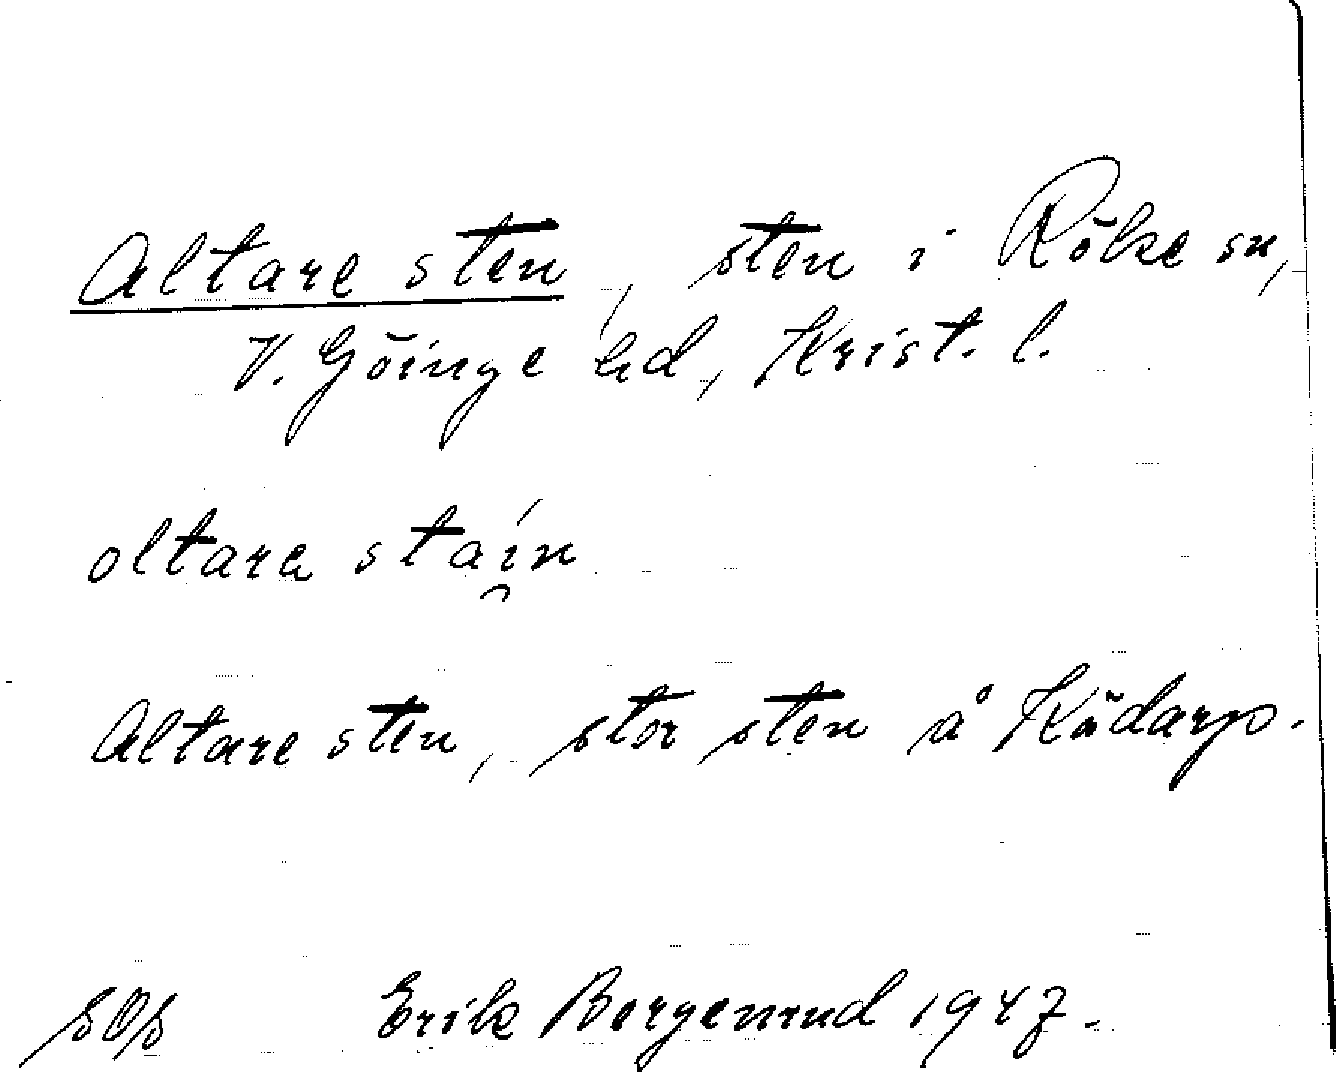 Altare sten, sten i Röke sn,
V. Göinge hd, Krist. l.
oltara staín
Altare sten, stor sten å Kådarp.
Erik Bergenrud 1947.